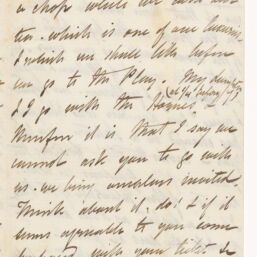 a shop where we and our
tea - which is one of our luxuries
& which we shall like before
we go to the Play. My
& I go with the
therefore it is that I say we
cannot ask you to go with
us - we being ourselves invited.
Think about it - do! & if it
seems agreeable to you come
with your ticket &c